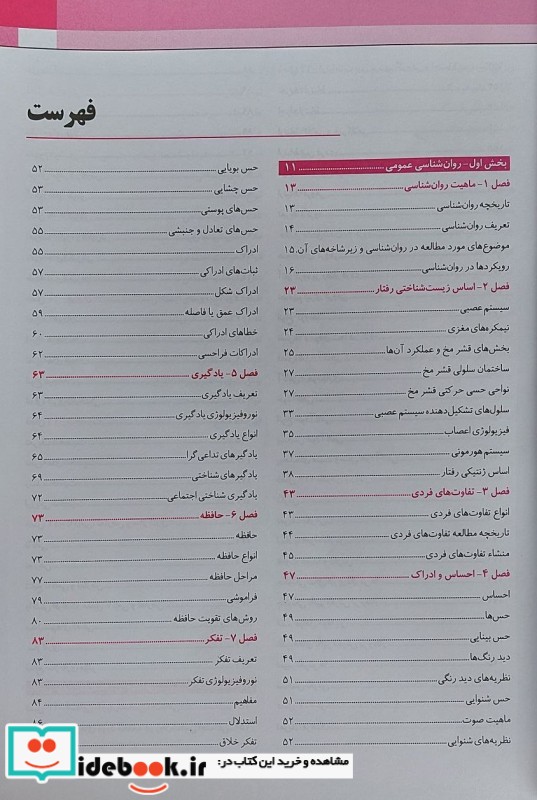 فهرست
بخش اول- روان‌شناسی عمومی ۱۱
فصل ۱- ماهیت روان‌شناسی ۱۳
تاریخچه روان‌شناسی ۱۳
تعریف روان‌شناسی ۱۴
موضوع‌های مورد مطالعه در روان‌شناسی و زیرشاخه‌های آن ۱۵
رویکردها در روان‌شناسی ۱۶
فصل ۲- اساس زیست‌شناختی رفتار ۲۳
سیستم عصبی ۲۳
نیمکره‌های مغزی ۲۴
بخش‌های قشر مخ و عملکرد آن‌ها ۲۵
ساختمان سلولی قشر مخ ۲۷
نواحی حسی حرکتی قشر مخ ۲۷
سلول‌های تشکیل‌دهنده سیستم عصبی ۳۳
فیزیولوژی اعصاب ۳۵
سیستم هورمونی ۳۷
اساس ژنتیکی رفتار ۳۸
فصل ۳- تفاوت‌های فردی ۴۳
انواع تفاوت‌های فردی ۴۳
تاریخچه مطالعه تفاوت‌های فردی ۴۴
منشاء تفاوت‌های فردی ۴۵
فصل ۴- احساس و ادراک ۴۷
احساس ۴۷
حس‌ها ۴۹
حس بینایی ۴۹
دید رنگ‌ها ۴۹
نظریه‌های دید رنگی ۵۱
حس شنوایی ۵۱
ماهیت صوت ۵۲
نظریه‌های شنوایی ۵۲
حس بویایی ۵۲
حس چشایی ۵۳
حس‌های پوستی ۵۳
حس‌های تعادل و جنبشی ۵۵
ادراک ۵۵
ثبات‌های ادراکی ۵۷
ادراک شکل ۵۷
ادراک عمق یا فاصله ۵۹
خطاهای ادراکی ۶۰
ادراکات فراحسی ۶۲
فصل ۵- یادگیری ۶۳
تعریف یادگیری ۶۳
نوروفیزیولوژی یادگیری ۶۴
انواع یادگیری ۶۴
یادگیرهای تداعی‌گرا ۶۵
یادگیرهای شناختی ۶۹
یادگیری شناختی اجتماعی ۷۲
فصل ۶- حافظه ۷۳
حافظه ۷۳
انواع حافظه ۷۳
مراحل حافظه ۷۷
فراموشی ۷۹
روش‌های تقویت حافظه ۸۰
فصل ۷- تفکر ۸۳
تعریف تفکر ۸۳
نوروفیزیولوژی تفکر ۸۳
مفاهیم ۸۴
استدلال ۸۶
تفکر خلاق
مشاهده و خرید این کتاب در:
idebook.ir